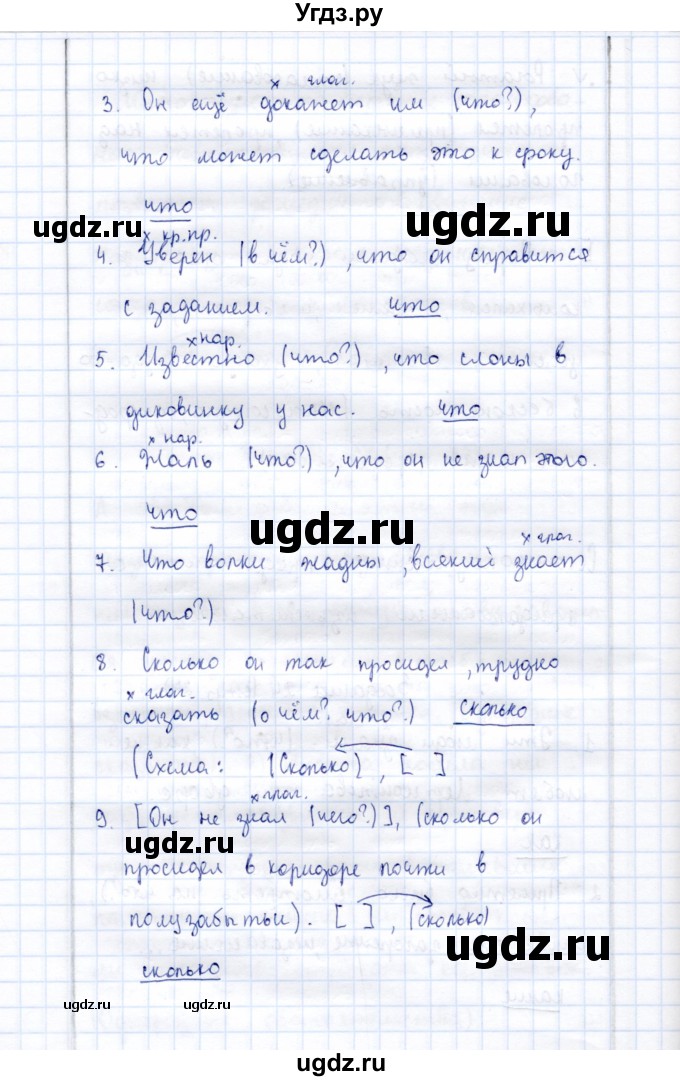 Угдз.ру
х глаг.
3. Он ещё докажет им (что?),
что может сделать это к сроку.
что
ugdz.ru ugdz.ru
х кр.пр.
4. Уверен (в чём?), что он справится
с заданием. что
ugdz.ru
х нар.
5. Известно (что?), что слоны в
диковинку у нас. что
х нар.
6. Жаль (что?), что он не знал этого.
что
ugdz.ru
х глаг.
7. Что волки жадны, всякий знает
(что?)
8. Сколько он так просидел, трудно
х глаг.
сказать (о чём? что?) сколько
(Схема: (Сколько), [ ]
х глаг.
9. [Он не знал (чего?)], (сколько он
ugdz.ru
просидел в коридоре почти в
ugdz.ru
полузабытьи). [ ], (сколько)
ugdz.ru
сколько
ugdz.ru ugdz.ru
ugdz.ru